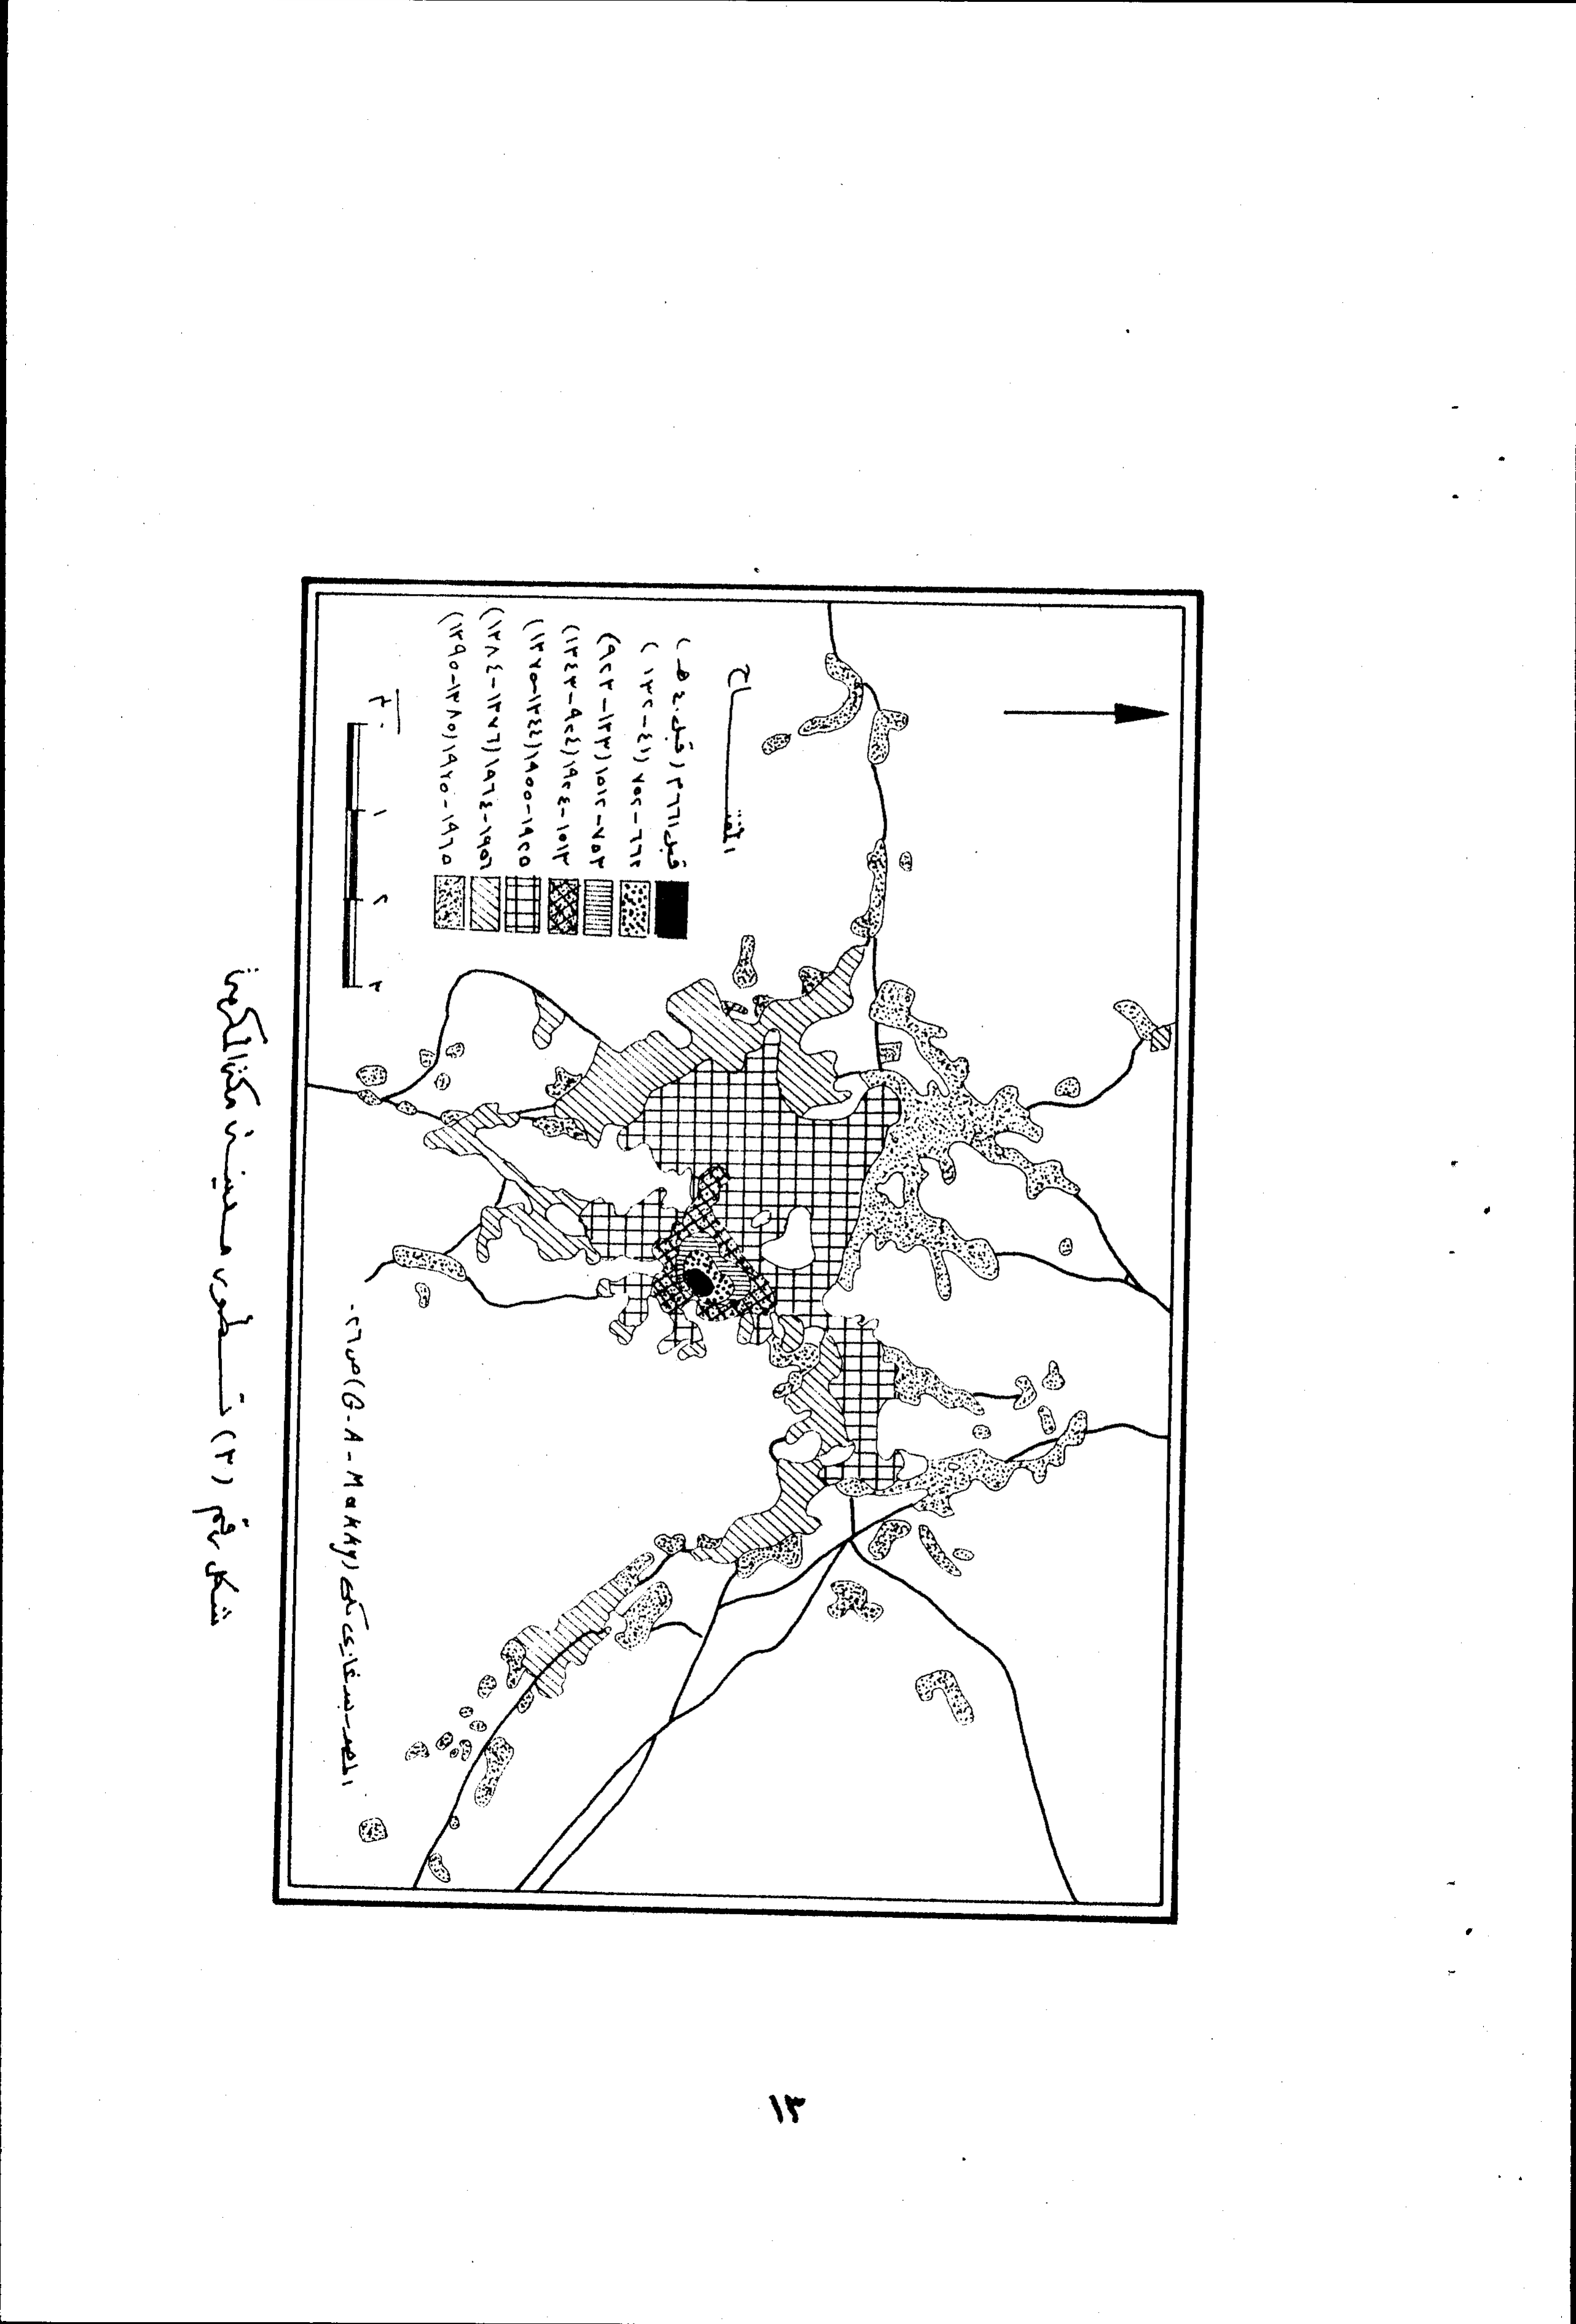 المفتاح
قبل ٦٦١ م (قبل ٤٠ هـ)
٦٦٢-٧٥٢ (٤١-١٣٢)
٧٥٣-١٥١٢ (١٣٣-٩٢٣)
١٥١٣-١٩٢٤ (٩٢٤-١٣٤٣)
١٩٢٥-١٩٥٥ (١٣٤٤-١٣٧٥)
١٩٥٦-١٩٦٤ (١٣٧٦-١٣٨٤)
١٩٦٥-١٩٧٠ (١٣٨٥-١٣٩٠)
٠ ١ ٢ ٣
المصدر: غازي مكي (G-A-Makky) ص ٢٦.
شكل رقم (٣) تطور مدينة مكة المكرمة
١٣